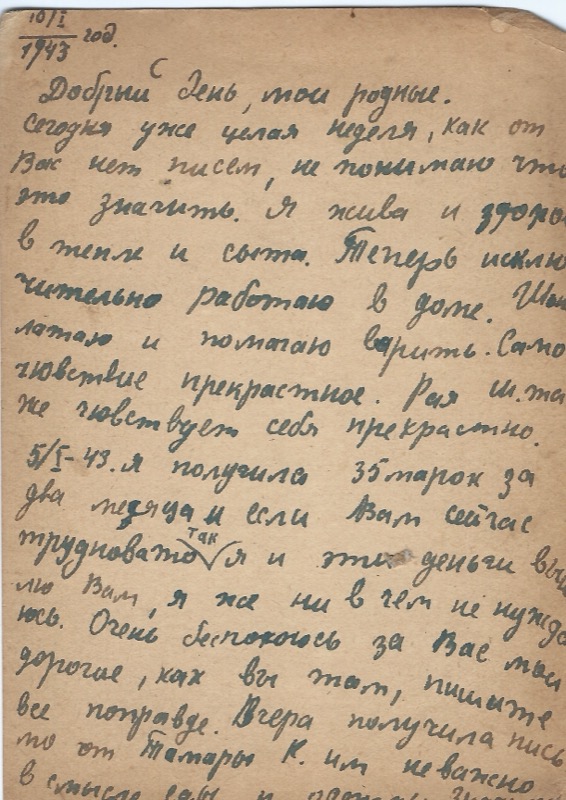 10/I
1943 год.
Добрый день, мои родные.
Сегодня уже целая неделя, как от
Вас нет писем, не понимаю что
это значить. Я жива и здоро
в тепле и сыта. Теперь исклю
чительно работаю в доме.
латаю и помагаю варить. Само
чювствие прекрастное. Рая Ш. та
же чювствует себя прекрастно.
5/I-43. я получила 35 марок за
два месяца и если Вам сейчас
трудновато так я и эти деньги вы
лю Вам, я же ни в чем не нужда
юсь. Очень беспокоюсь за Вас мои
дорогие, как вы там, пишите
все поправде. Вчера получила пись
мо от Тамары К. им не важно
в смысле еды и